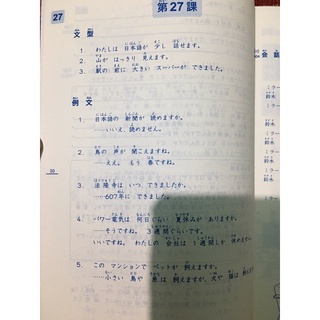 27
第27課
文型
1. わたしは 日本語が 少し 話せます。
2. 山が はっきり 見えます。
3. 駅の 前に 大きい スーパーが できました。
例文
1. 日本語の 新聞が 読めますか。
……いいえ、読めません。
2. 鳥の 声が 聞こえますね。
……ええ。もう 春ですね。
3. 法隆寺は いつ できましたか。
……607年に できました。
4. パワー電気は 何日ぐらい 夏休みが ありますか。
……そうですね。3週間ぐらいです。
いいですね。わたしの 会社は 1週間しか 休めません
5. この マンションで ペットが 飼えますか。
……小さい 鳥や 魚は 飼えますが、犬や 猫は
会話
ミラー
鈴木
ミラー
鈴木